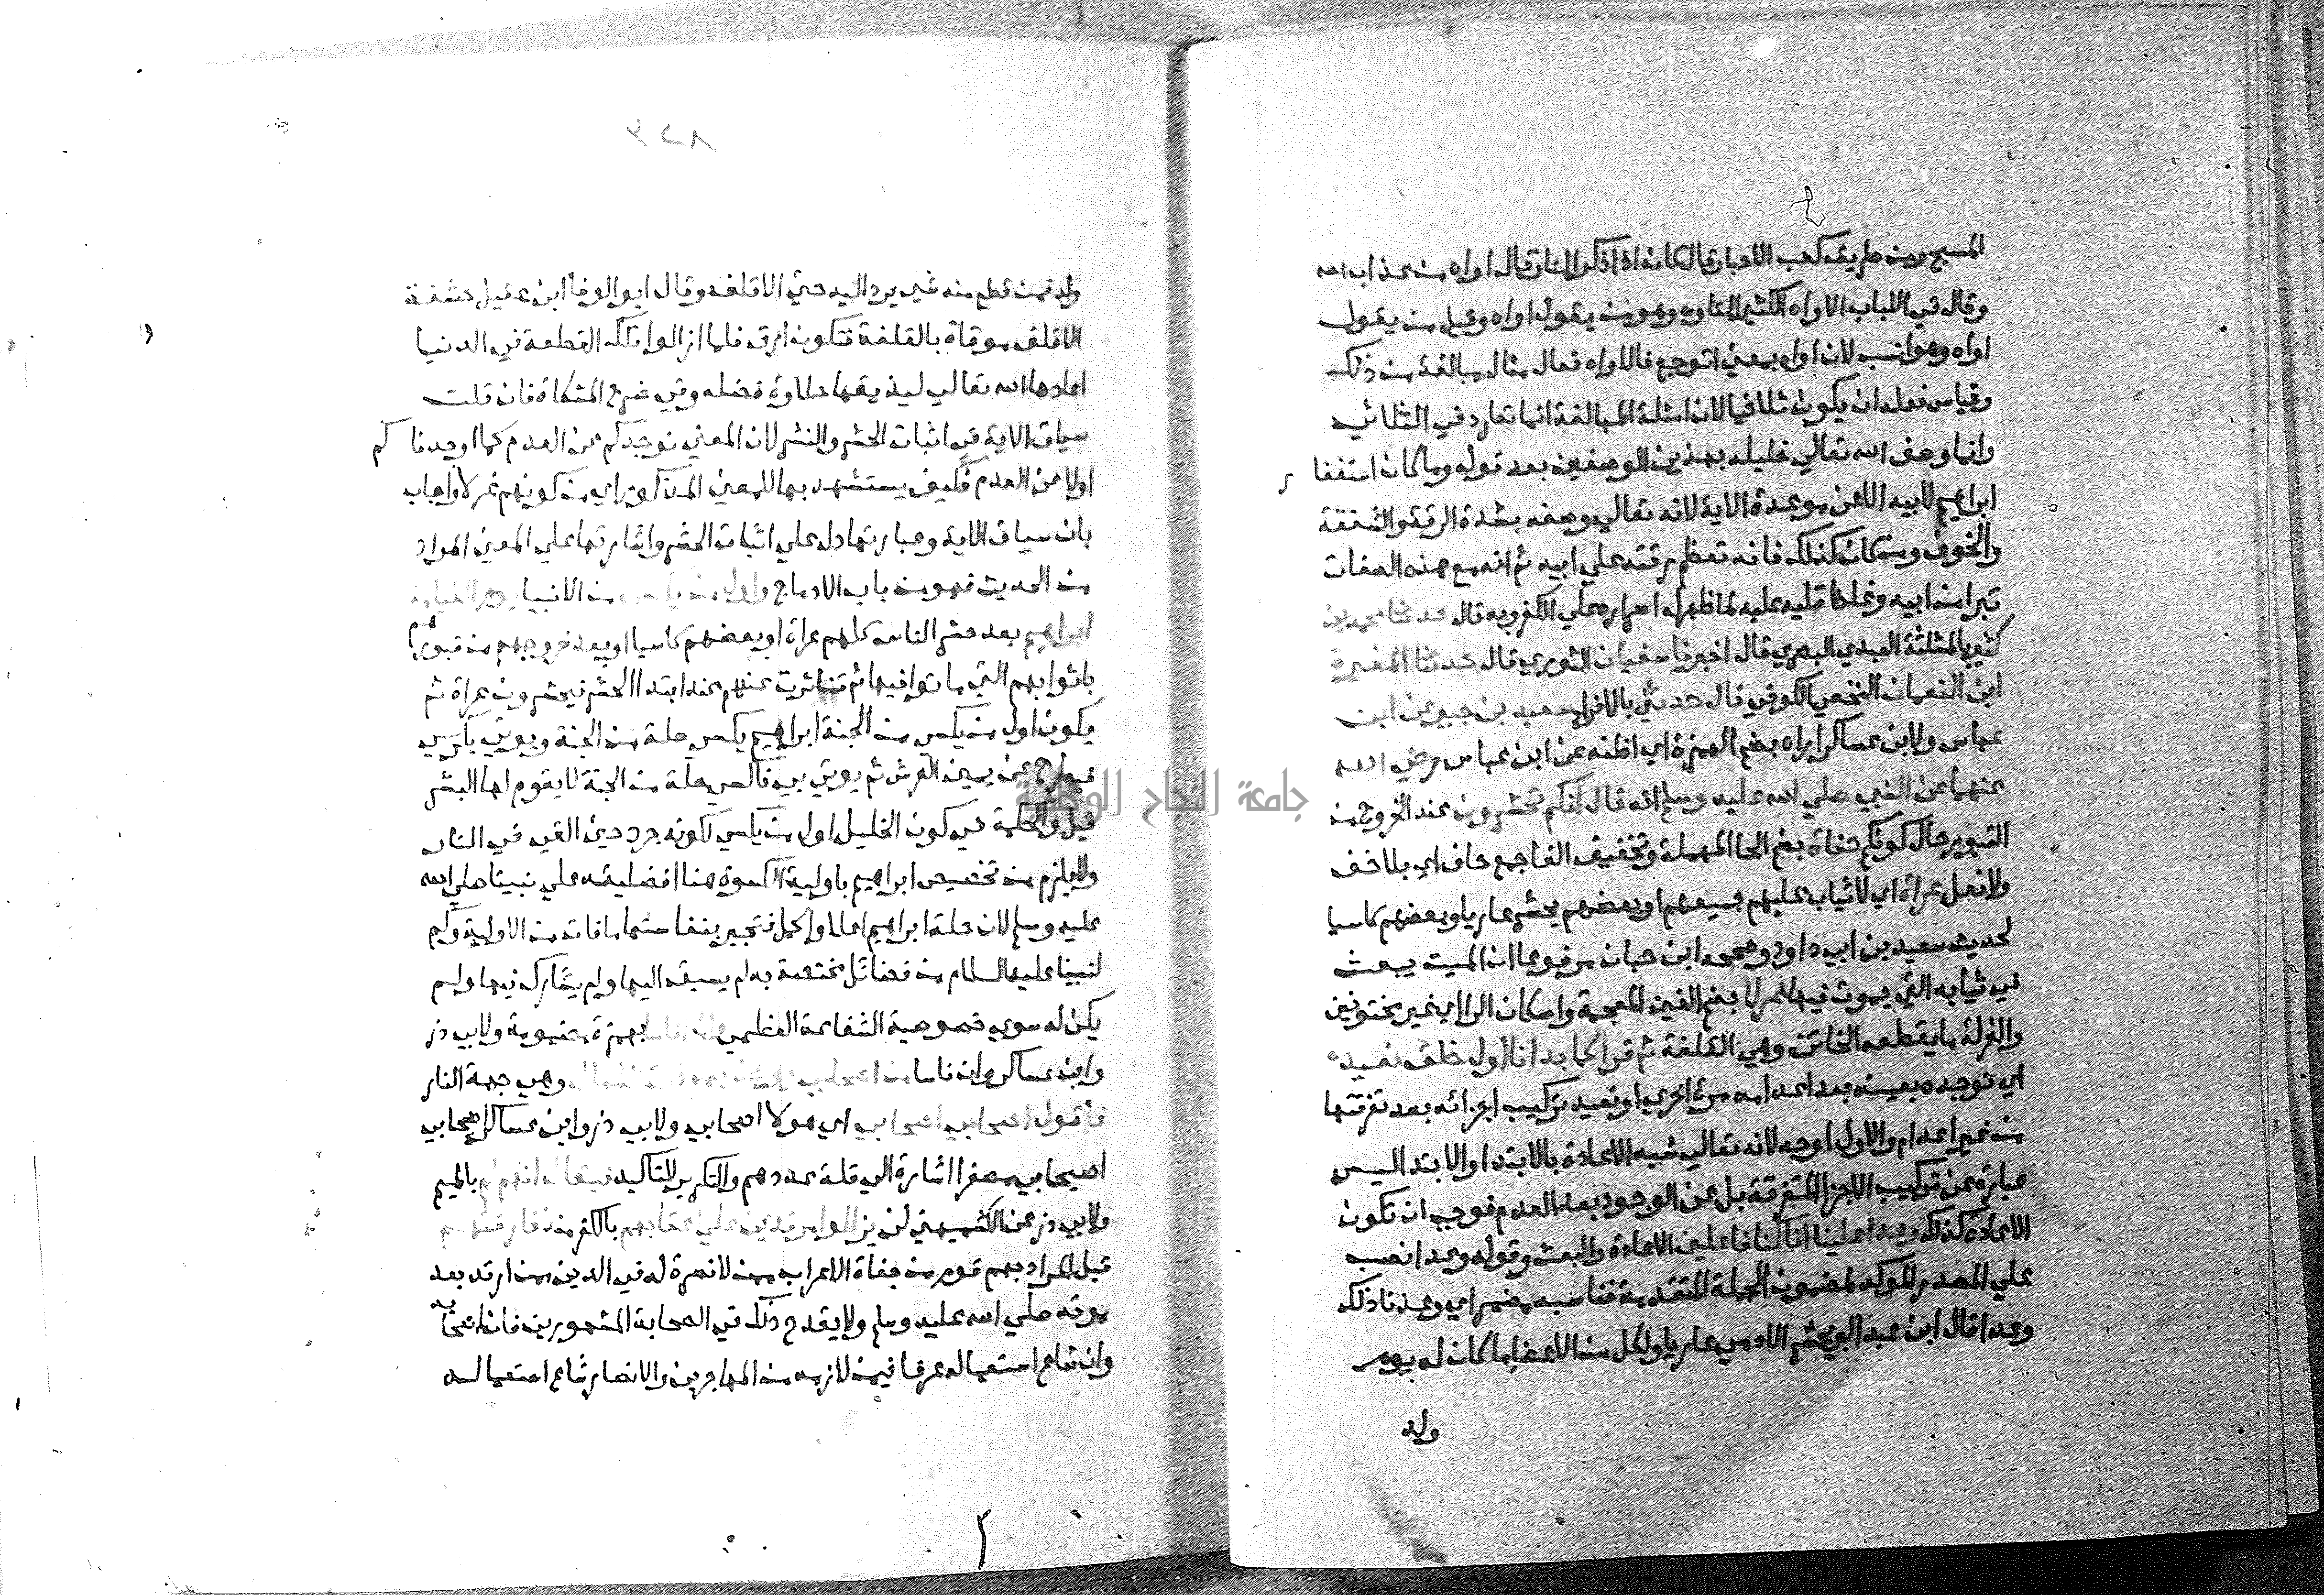 المسبح ومن طريق كعب الاحبار قال كان اذا ذكر النار قال اواه من عذاب الله
وقال في اللباب الاواه الكثير التاوه وهو من يقول اواه وقيل من يقول
اواه وهو انسب لان اواه بمعني اتوجع فالاواه فعال مثال مبالغة من ذلك
وقياس فعله ان يكون ثلاثيا لان امثلة المبالغة انما تطرد في الثلاثي
وانما وصف الله تعالي خليله بهذين الوصفين بعد قوله وما كان استغفار
ابراهيم لابيه الا عن موعدة الاية لانه تعالي وصفه بشدة الرقة والشفقة
والخوف ومن كان كذلك فانه تعظم رقته علي ابيه ثم انه مع هذه الصفات
تبرا من ابيه وغلظ قلبه عليه لما ظهر له اصراره علي الكفر وبه قال حدثنا محمد بن
كثير بالمثلثة العبدي البصري قال اخبرنا سفيان الثوري قال حدثنا المغيرة
ابن النعمان النخعي الكوفي قال حدثني بالافراد سعيد بن جبير عن ابن
عباس ولابن عساكر اراه بضم الهمزة اي اظنه عن ابن عباس رضي الله
عنهما عن النبي صلي الله عليه وسلم انه قال انكم تحشرون عند الخروج من
القبور حال كونكم حفاة بضم الحا المهملة وتخفيف الفا جمع حاف اي بلا خف
ولا نعل عراة اي لا ثياب عليهم جميعهم او بعضهم يحشر عاريا وبعضهم كاسيا
لحديث سعيد بن ابي داود وصححه ابن حبان مرفوعا ان الميت يبعث
في ثيابه التي يموت فيها غرلا بضم الغين المعجمة واسكان الرا اي غير مختونين
والغرلة ما يقطعه الخاتن وهي القلفة ثم قرا كما بدانا اول خلق نعيده
اي نوجده بعينه بعد اعدامه مرة اخري او نعيد تركيب اجزائه بعد تفرقتها
من غير اعدام والاول اوجه لانه تعالي شبه الاعادة بالابتدا والابتدا ليس
عبارة عن تركيب الاجزا المتفرقة بل عن الوجود بعد العدم فوجب ان تكون
الاعادة كذلك وعدا علينا انا كنا فاعلين الاعادة والبعث وقوله وعدا نصب
علي المصدر الموكد لمضمون الجملة المتقدمة فناصبه مضمر اي وعدنا ذلك
وعدا قال ابن عبد البر يحشر الادمي عاريا ولكل من الاعضا ما كان له يوم
ولد
٨٢٣
ولد فمن قطع منه شي يرد اليه حتي الاقلف وقال ابو الوفا ابن عقيل حشفة
الاقلف موقاة بالقلفة فتكون ارق فلما ازالوا تلك القطعة في الدنيا
اعادها الله تعالي ليذيقها حلاوة فضله وفي شرح المشكاة فان قلت
سياق الاية في اثبات الحشر والنشر لان المعني نوجدكم عن العدم كما اوجدناكم
اولا عن العدم فكيف يستشهد بها للمعني المذكور اي من كونهم غرلا واجاب
بان سياق الاية وعبارتها دل علي اثبات الحشر واشارتها علي المعني المراد
من الحديث فهو من باب الادماج واول من يكسي من الانبيا يوم القيامة
ابراهيم بعد حشر الناس كلهم عراة او بعضهم كاسيا او بعد خروجهم من قبورهم
باثوابهم التي ماتوا فيها ثم تتناثر عنهم عند ابتدا الحشر فيحشرون عراة ثم
يكون اول من يكسي من الجنة ابراهيم يكسي حلة من الجنة ويوتي بكرسي
فيطرح عن يمين العرش ثم يوتي بي فاكسي حلة من الجنة لا يقوم لها البشر
قيل والحكمة في كون الخليل اول من يكسي لكونه جرد حين القي في النار
ولا يلزم من تخصيص ابراهيم باولية الكسوة هنا افضليته علي نبينا صلي الله
عليه وسلم لان حلة ابراهيم اعلا واكمل فتجبر بنفاستها ما فات من الاولية وكم
لنبينا عليه السلام من فضائل مختصة به لم يسبق اليها ولم يشارك فيها ولو لم
يكن له سوي خصوصية الشفاعة العظمي وان اناسا بهمزة مضمومة ولابي ذر
وابن عساكر وان ناسا من اصحابي يوخذ بهم ذات الشمال وهي جهة النار
فاقول اصحابي اصحابي اي هولا اصحابي ولابي ذر وابن عساكر اصيحابي
اصيحابي مصغرا اشارة الي قلة عددهم والتكرير للتاكيد فيقال انهم لم بالميم
ولابي ذر عن الكشميهني لن يزالوا مرتدين علي اعقابهم بالكفر منذ فارقتهم
قيل المراد بهم قوم من جفاة الاعراب ممن لا نصرة له في الدين ممن ارتد بعد
موته صلي الله عليه وسلم ولا يقدح ذلك في الصحابة المشهورين فان اصحابه
وان شاع استعماله عرفا فيمن لازمه من المهاجرين والانصار شاع استعماله
جامعة النجاح الوطنية